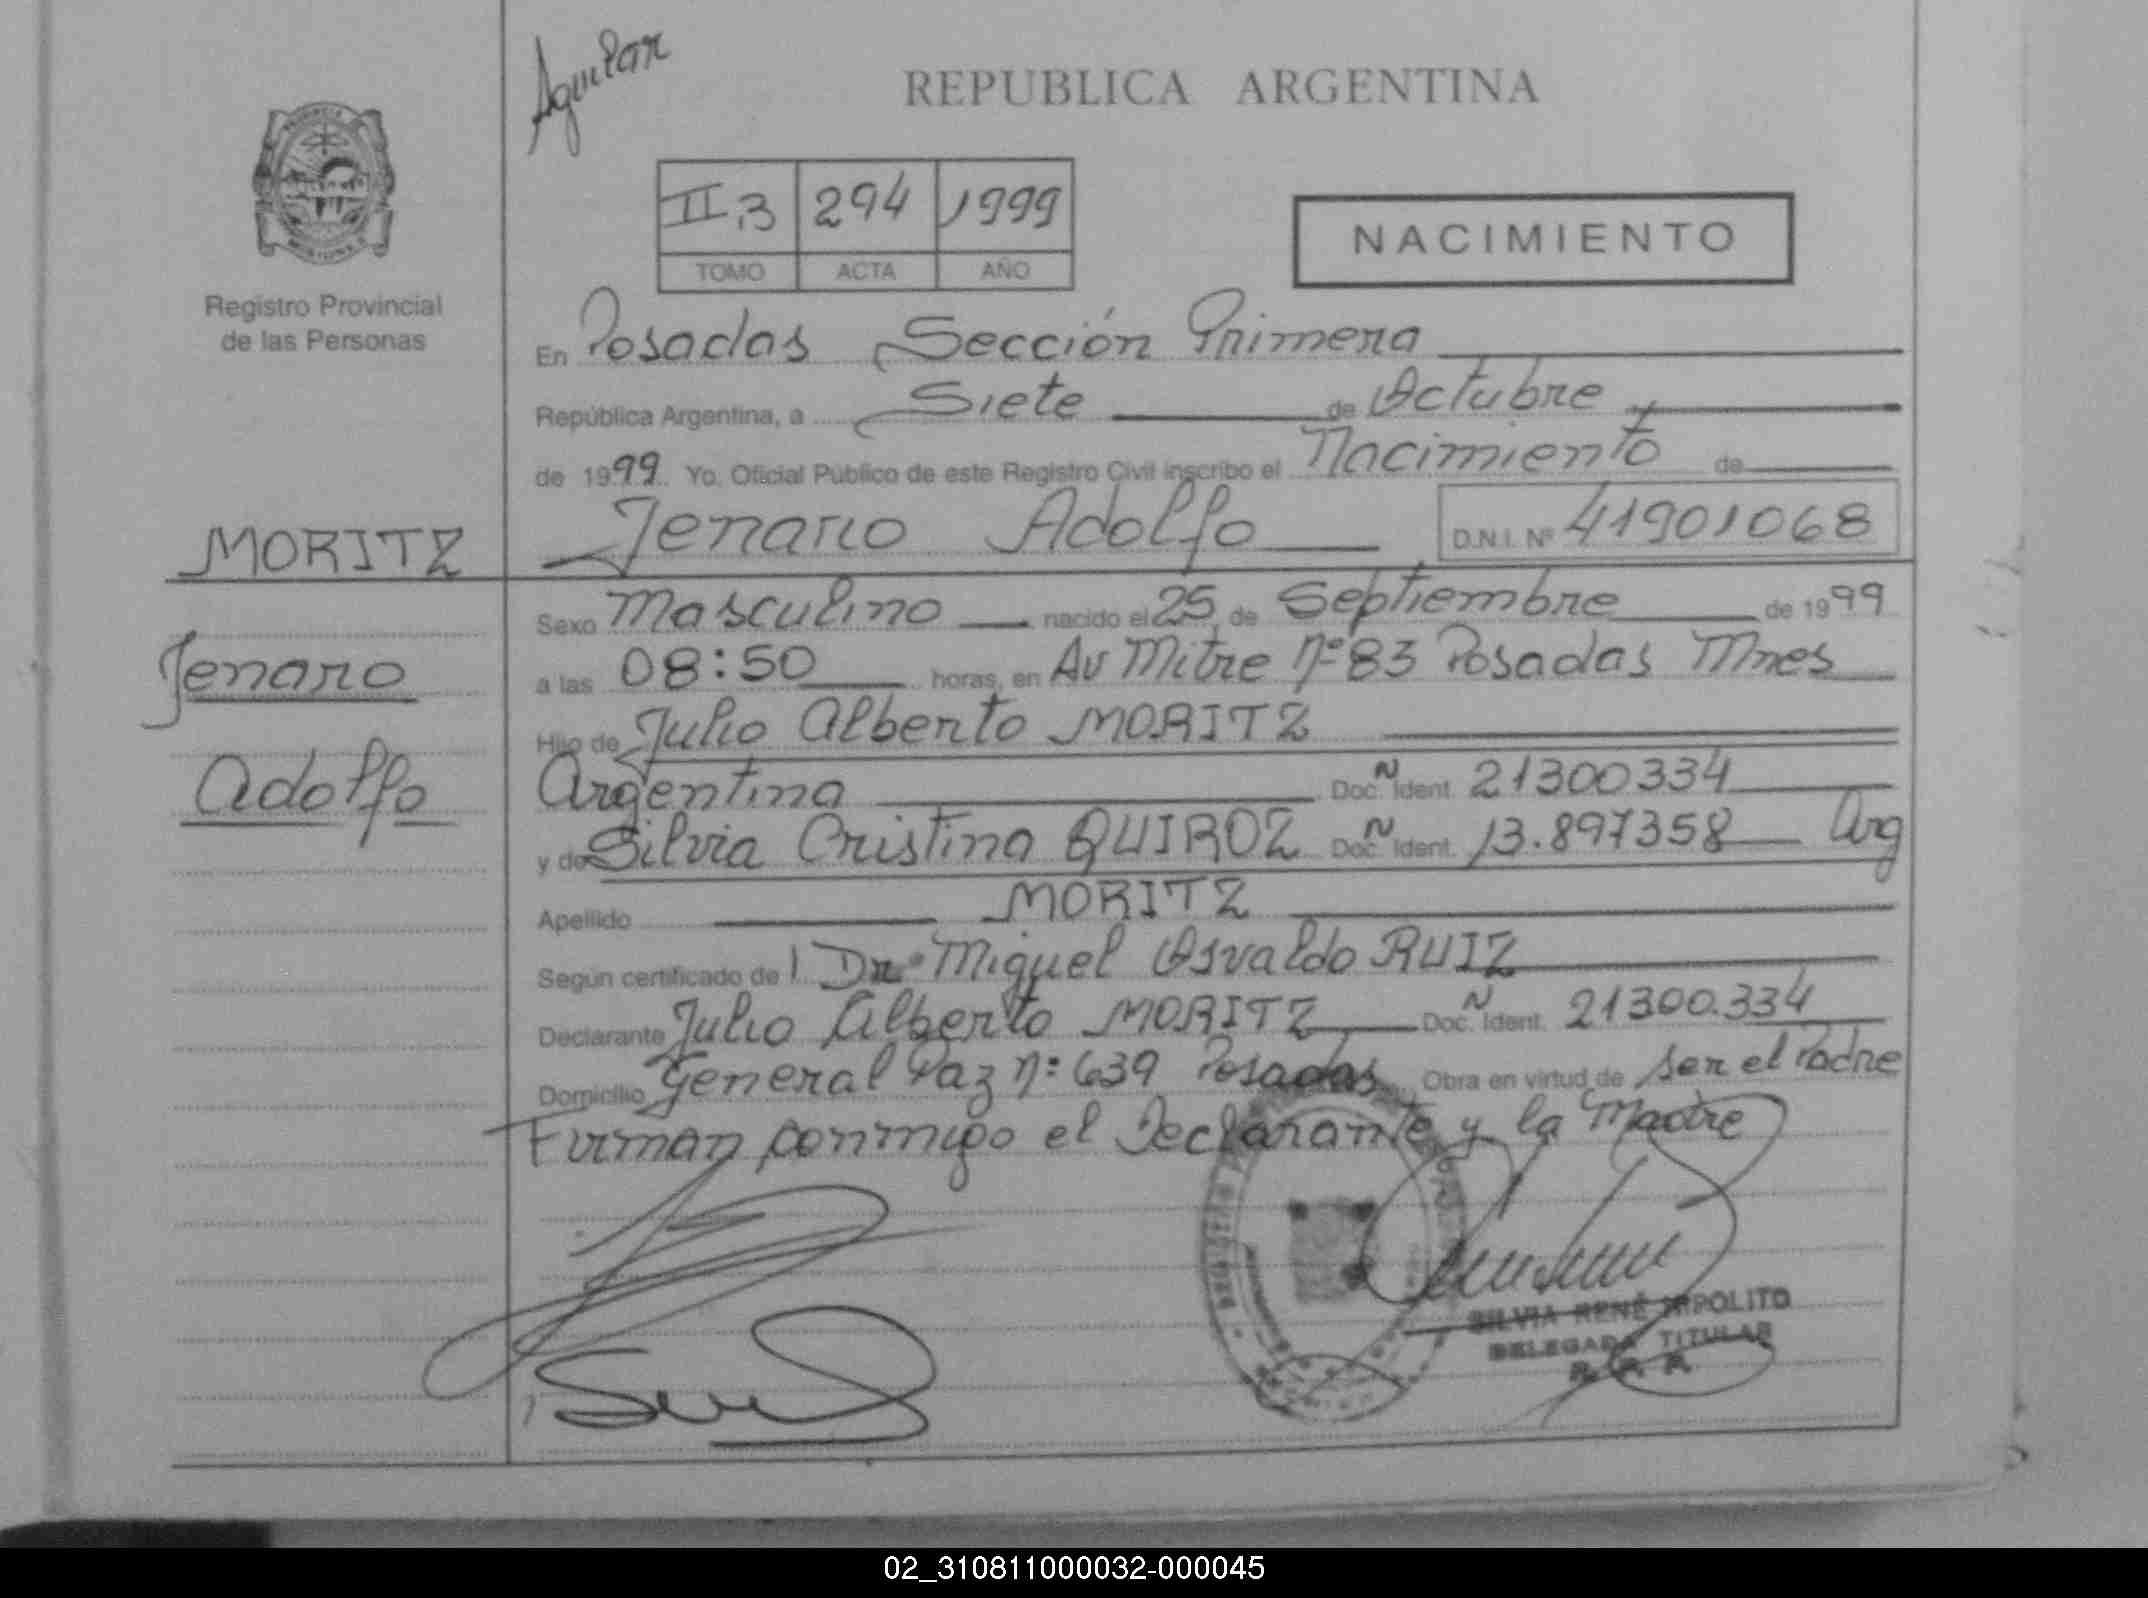 Aguilar
REPUBLICA ARGENTINA
II.3 294 1999
TOMO ACTA AÑO
NACIMIENTO
Registro Provincial
de las Personas
En Posadas Sección Primera
República Argentina, a Siete de Octubre
de 1999 Yo. Oficial Público de este Registro Civil inscribo el Nacimiento de
Jenaro Adolfo D.N.I. Nº 41901068
MORITZ
Jenaro
Adolfo
Sexo Masculino nacido el 25 de Septiembre de 1999
a las 08:50 horas, en Av Mitre Nº 83 Posadas Mnes
Hijo de Julio Alberto MORITZ
Argentina Doc. Ident. 21300334
y de Silvia Cristina QUIROZ Doc. Ident. 13.897358 Arg
Apellido MORITZ
Según certificado de l Dr. Miguel Osvaldo RUIZ
Declarante Julio Alberto MORITZ Doc. Ident. 21300.334
Domicilio General Paz Nº 639 Posadas Obra en virtud de ser el Padre
Firman conmigo el Declarante y la Madre
SILVIA RENÉ HIPOLITO
DELEGADA TITULAR
R. P. P.
02_310811000032-000045